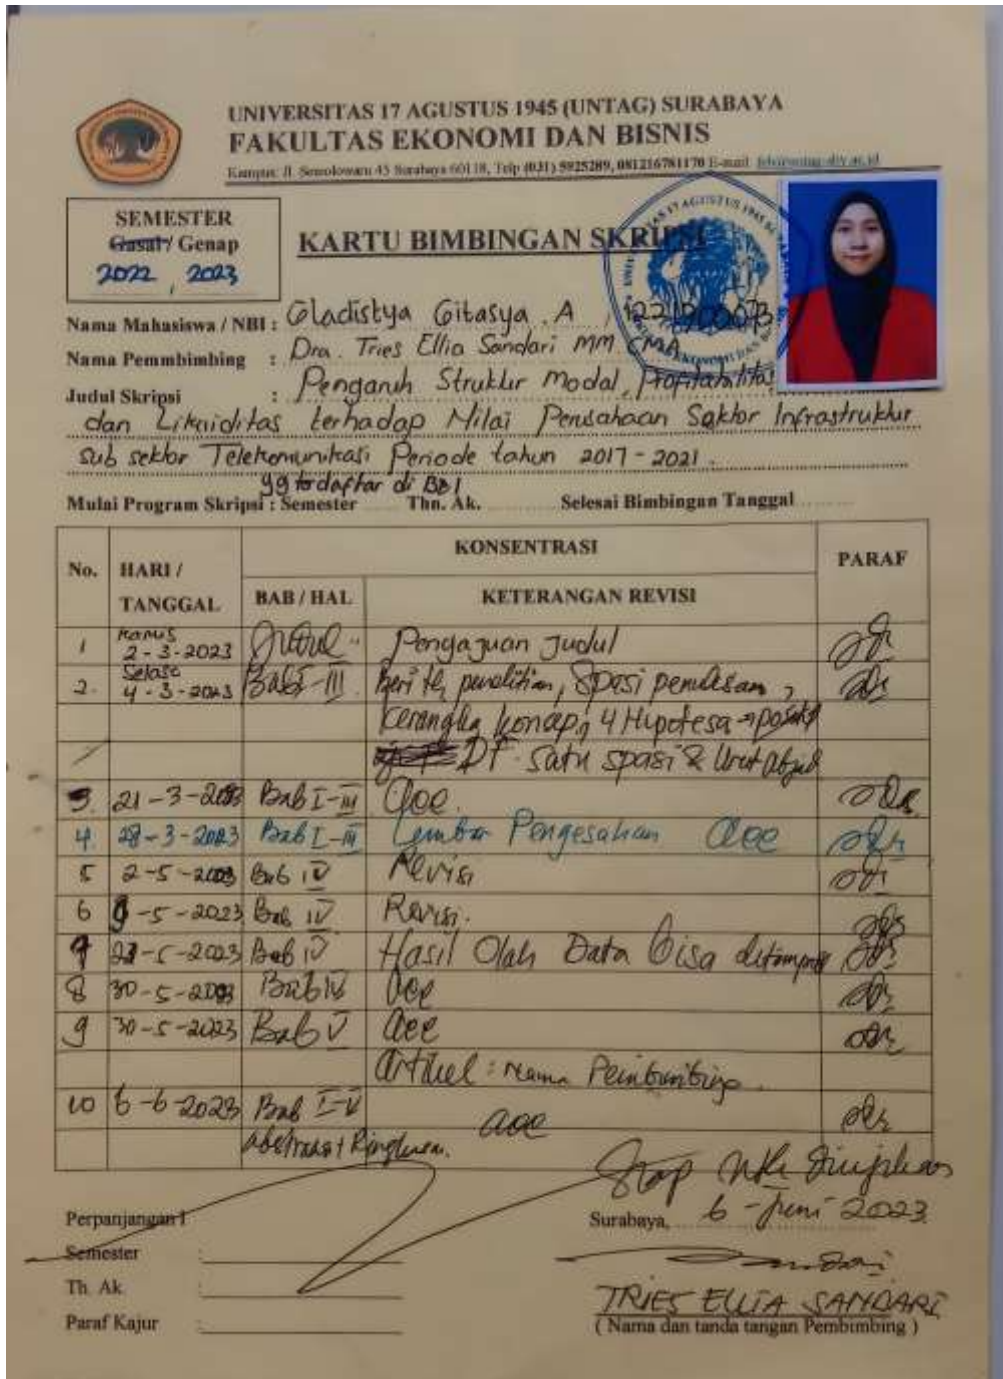 UNIVERSITAS 17 AGUSTUS 1945 (UNTAG) SURABAYA
FAKULTAS EKONOMI DAN BISNIS
Kampus: Jl. Semolowaru 45 Surabaya 60118, Telp (031) 5925289, 081216781170 E-mail:
SEMESTER
Gasal / Genap
2022, 2023
KARTU BIMBINGAN SKRIPSI
Nama Mahasiswa / NBI : Gladistya Gitasya . A
Nama Pemmbimbing : Dra. Tries Ellia Sandari MM. CMA
Judul Skripsi : Pengaruh Struktur Modal, Profitabilitas
dan Likuiditas terhadap Nilai Perusahaan Sektor Infrastruktur
sub sektor Telekomunikasi Periode tahun 2017 - 2021.
yg terdaftar di BEI
Mulai Program Skripsi : Semester Thn. Ak. Selesai Bimbingan Tanggal
No. HARI / TANGGAL KONSENTRASI PARAF
BAB / HAL KETERANGAN REVISI
1 Kamis 2-3-2023 Judul Pengajuan Judul
2. Selasa 4-3-2023 Bab I-III Beri penelitian, Spasi penulisan,
Kerangka konsep, 4 Hipotesa
DF. Satu spasi & Urut Abjad
3. 21-3-2023 Bab I-III acc.
4. 28-3-2023 Bab I-III Lembar Pengesahan acc
5 2-5-2023 Bab IV Revisi
6 9-5-2023 Bab IV Revisi.
7 23-5-2023 Bab IV Hasil Olah Data bisa
8 30-5-2023 Bab IV acc
9 30-5-2023 Bab V acc
Artikel : Nama Pembimbing.
10 6-6-2023 Bab I-V acc
Abstrak + Ringkasan.
Siap utk diujikan
Perpanjangan I
Surabaya, 6 - Juni 2023
Semester :
Th. Ak. :
TRIES ELLIA SANDARI
Paraf Kajur :
( Nama dan tanda tangan Pembimbing )